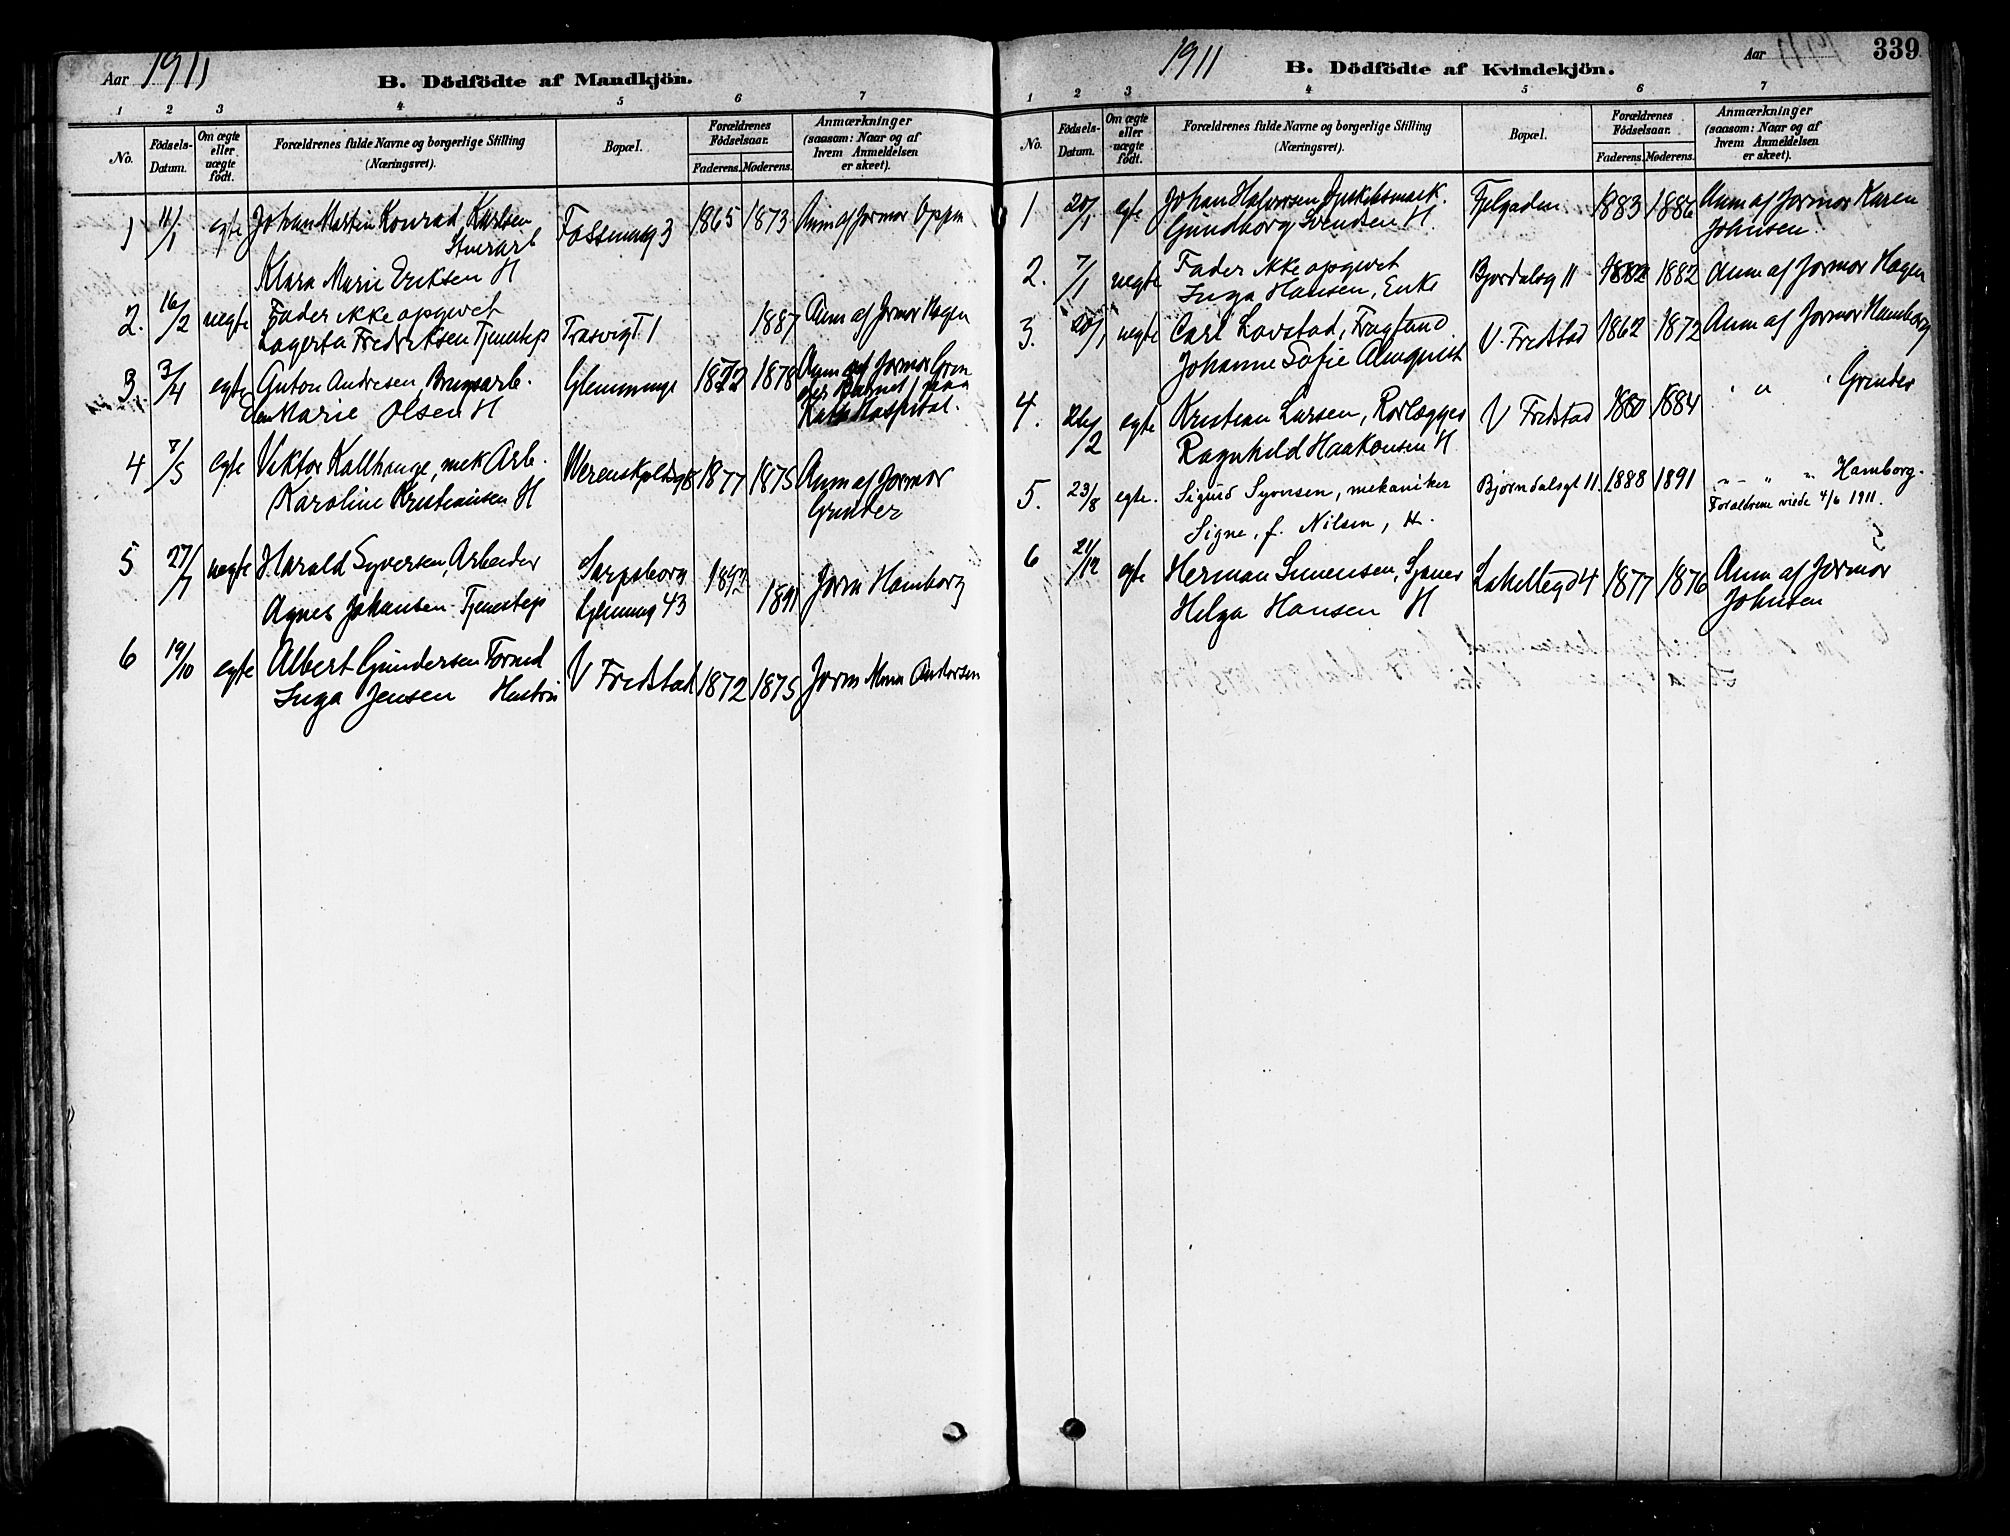 Aar 1911
B. Dödfödte af Mandkjön.
1 2 3 4 5 6 7
No. Födsels-Datum. Om ægte eller uægte födt. Forældrenes fulde Navne og borgerlige Stilling (Næringsvei). Bopæl. Forældrenes Födselsaar. Faderens. Moderens. Anmærkninger (saasom: Naar og af hvem Anmeldelsen er skeet).
1 11/1 egte Johan Martin Konrad Karlsen 1865 1873 Anm af Jormor Oppen
Klara Marie Eriksen H
2. 16/2 uegte Fader ikke opgivet 1887 Anm af Jormor Hagen
Lagerta Fredriksen Tjenestep Trosvigt 1
3. 3/4 egte Anton Andresen, Brugsarb. Glemminge 1878 Anm af Jormor
Marie Olsen H Hospital.
4 7/5 egte Viktor Kallhauge, mek Arb. 1877 1875 Anm af Jormor
Karoline Kristiansen H Grinder
5 27/7 uegte Harald Syversen, Arbeider Sarpsborg
Agnes Johansen Tjenestep Glemmig 43 1891 Jorm Hamborg
6 19/10 egte Albert Gundersen Formd V Fredstad 1872 1875 Jorm Mina Andersen
Inga Jensen Hustru
1911
B. Dödfödte af Kvindekjön.
Aar 1911
339
1 2 3 4 5 6 7
No. Födsels-Datum. Om ægte eller uægte födt. Forældrenes fulde Navne og borgerlige Stilling (Næringsvei). Bopæl. Forældrenes Födselsaar. Faderens. Moderens. Anmærkninger (saasom: Naar og af hvem Anmeldelsen er skeet).
1 20/1 egte Johan Halvorsen 1883 1886 Anm af Jormor Karen
Gundborg Svendsen H. Johnsen
2. 7/1 uegte Fader ikke opgivet Bjordalsg 11 1882 Anm af Jormor Hagen
Inga Hansen, Enke
3. 20/1 uegte Carl Lovstad, V. Fredstad 1862 1872 Anm af Jormor Hamborg
Johanne Sofie Almquist
4. 26/2 egte Kristian Larsen, Rorlægger V Fredstad 1880 1884 " " " Grinder
Ragnhild Haakonsen H
5. 23/8 egte. Sigurd Syversen, mekaniker Bjørndalsgt 11. 1888 1891 " " " Hamborg.
Signe, f. Nilsen, H. Forældrene viede 4/6 1911.
6 21/12 egte Herman Simensen, 1877 1876 Anm af Jormor
Helga Hansen H Johnsen